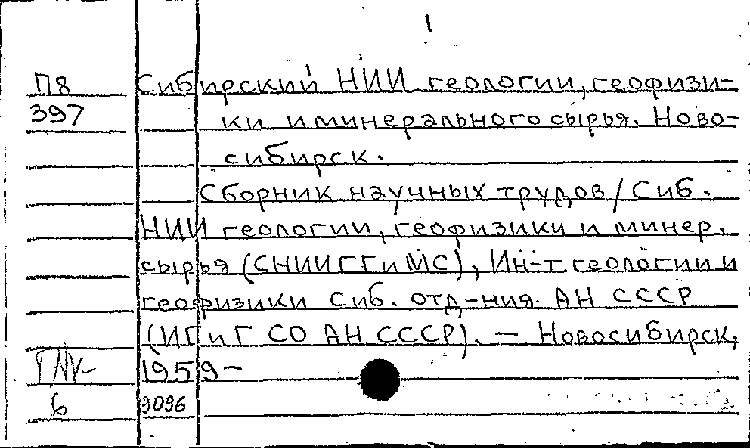 1
П8 Сибирский НИИ геологии, геофизи-
397 ки и минерального сырья. Ново-
сибирск.
Сборник научных трудов / Сиб.
НИИ геологии, геофизики и минер.
сырья (СНИИГГиМС), Ин-т геологии и
геофизики Сиб. отд-ния АН СССР
(ИГиГ СО АН СССР). — Новосибирск,
1959 —
6 9096